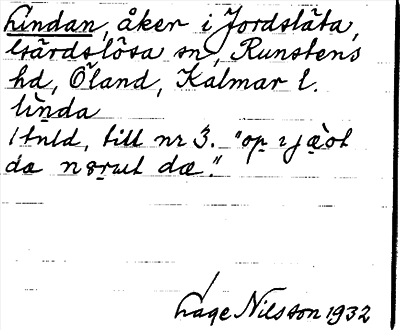 Lindan, åker i Jordslåta,
Gärdslösa sn, Runstens
hd, Öland, Kalmar l.
linda
1 tnld, till nr 3. "op
da da."
Lage Nilsson 1932